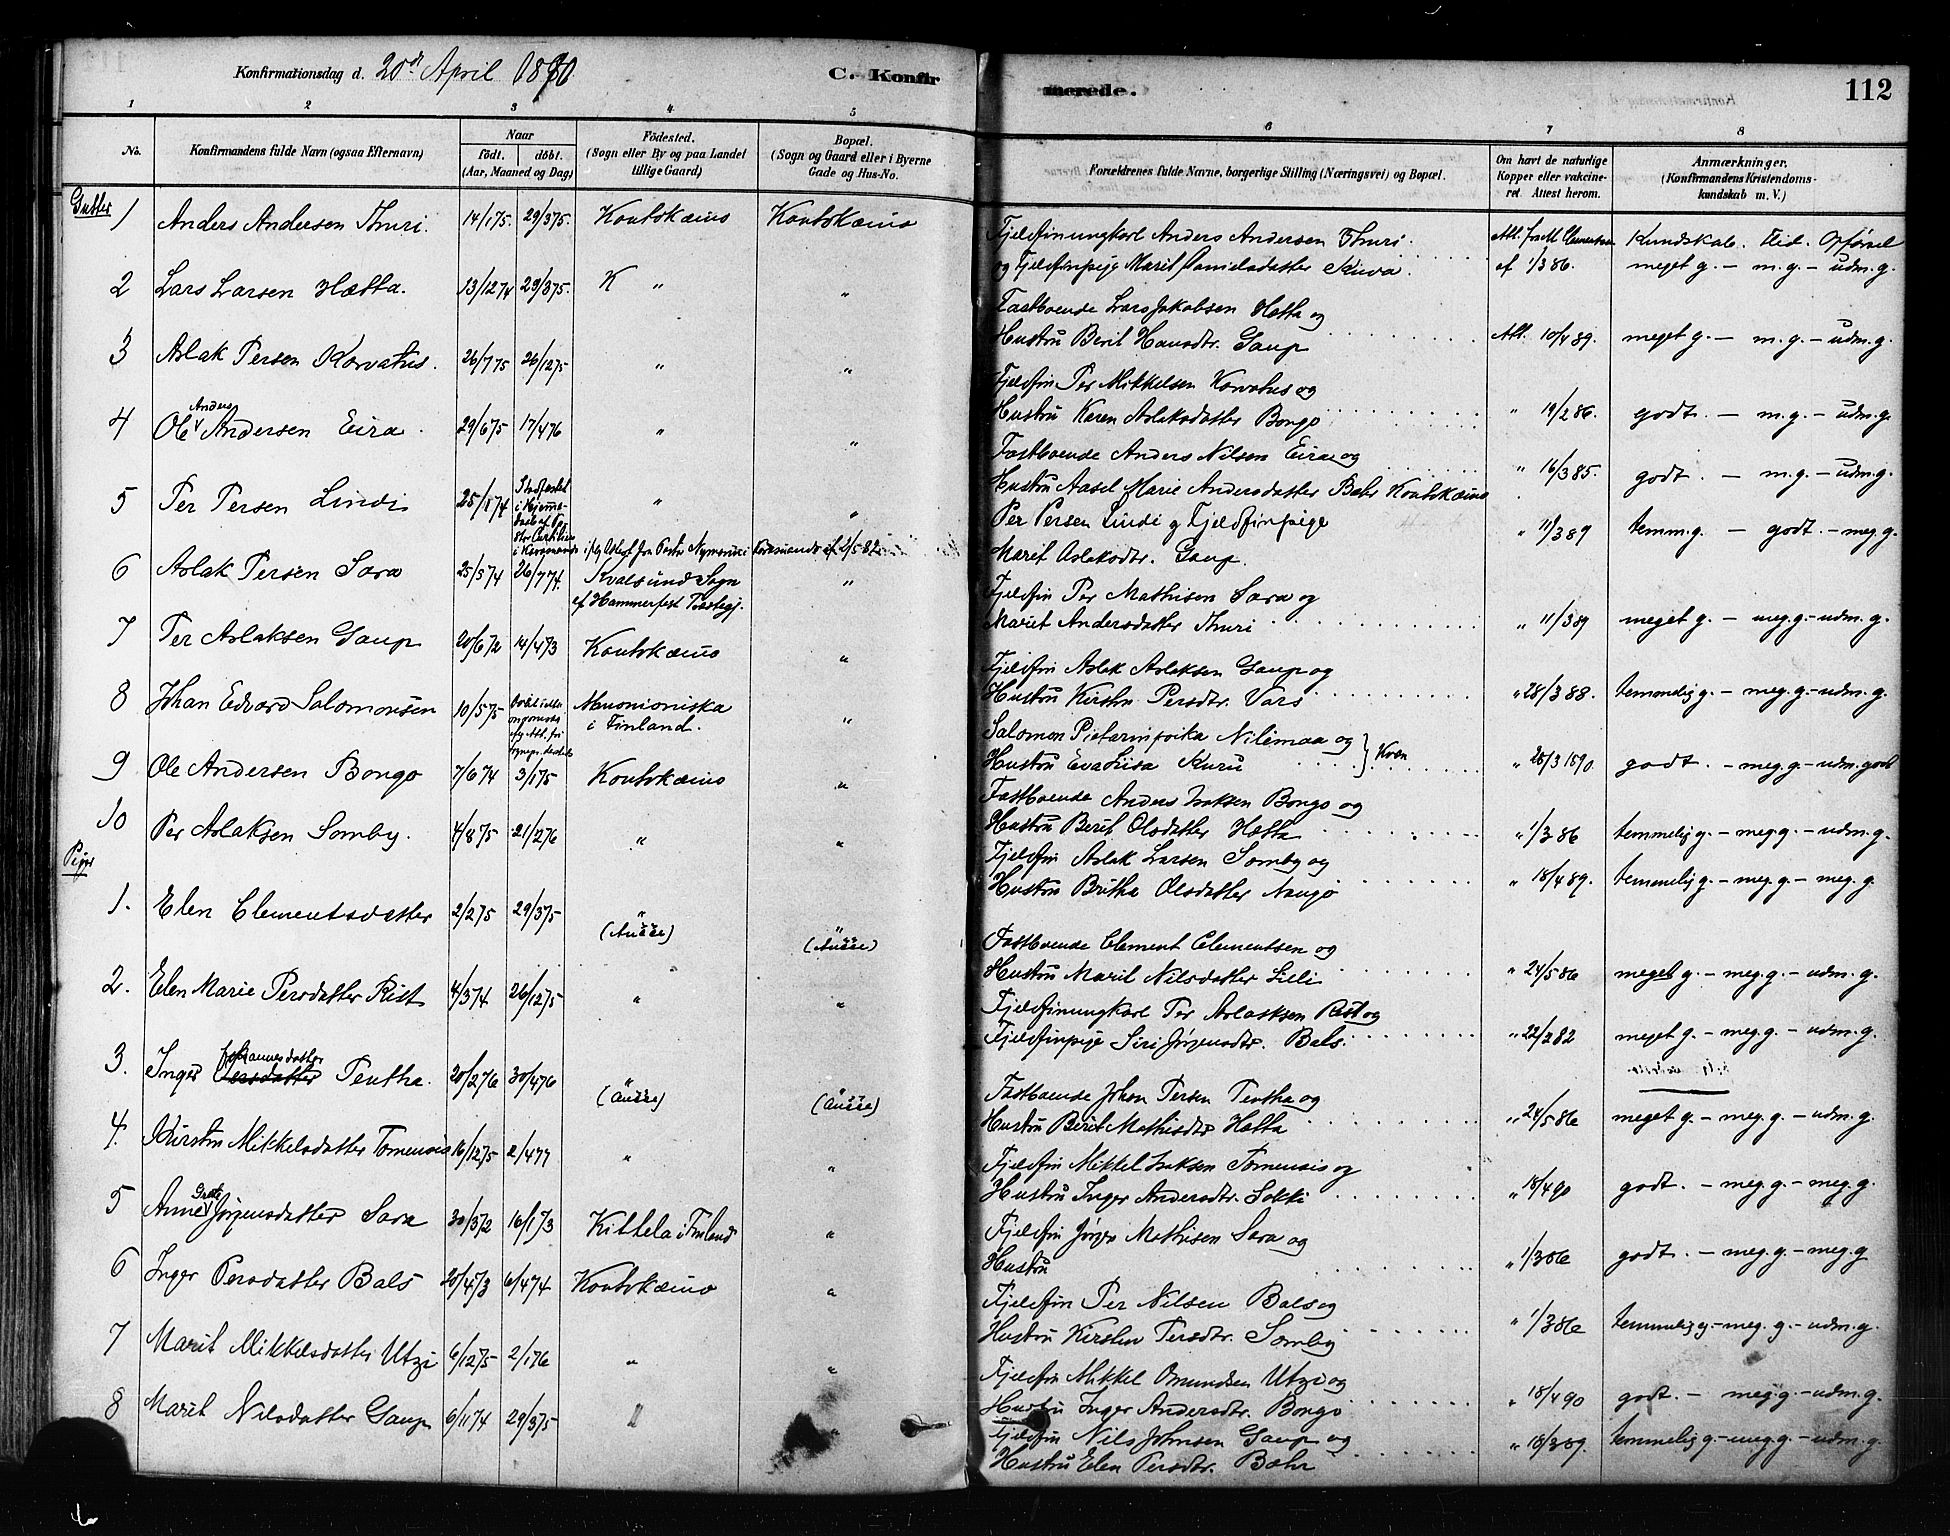 Konfirmationsdag d. 20de April 1890
C. Konfirmerede.
112
1 2 3 4 5 6 7 8
No.
Konfirmandens fulde Navn (ogsaa Efternavn)
Naar
födt. döbt.
(Aar, Maaned og Dag)
Födested.
(Sogn eller By og paa Landet tillige Gaard)
Bopæl.
(Sogn og Gaard eller i Byerne Gade og Hus-No.
Forældrenes fulde Navne, borgerlige Stilling (Næringsvei) og Bopæl.
Om havt de naturlige Kopper eller vakcineret. Attest herom.
Anmærkninger.
(Konfirmandens Kristendomskundskab m. V.)
Gutter
1 Anders Andersen Thuri. 14/1 75. 29/3 75. Koutokæino Koutokæino Fjeldfinungkarl Anders Andersen Thuri. Att. fra M. Clementsen Kundskab. Flid. Opførsel
og Fjeldfinpige Marit Danielsdatter Kuva. af 1/3 86. meget g. – m. g. – udm. g.
2 Lars Larsen Hætta. 13/12 74 29/3 75. K " " Fastboende Lars Jakobsen Hætta og
Hustru Berit Hansdtr. Gaup Att. 10/4 89. meget g. – m. g. – udm. g.
3 Aslak Persen Korvatus. 26/7 75 26/12 75 " " Fjeldfin Per Mikkelsen Korvatus og
Hustru Karen Aslaksdatter Bongo " 19/2 86. godt. – m. g. – udm. g.
4 Ole Anders Andersen Eira. 29/6 75 17/4 76 " " Fastboende Anders Nilsen Eira og
Hustru Aasel Marie Andersdatter Bæhr Koutokæino " 16/3 85. godt. – m. g. – udm. g.
5 Per Persen Lindi 25/1 74 Stadfæstet i Hjemmedaab " " Per Persen Lindi og Fjeldfinpige
Marit Aslaksdtr. Gaup. " 11/3 89 temm. g. – godt. – meg. g.
6 Aslak Persen Sara 25/5 74 26/7 74. Kvalsund Sogn
af Hammerfest Prestegj. " Fjeldfin Per Mathisen Sara og
Mariet Andersdatter Thuri " 11/3 89 meget g. – meg. g. – udm. g.
7 Per Aslaksen Gaup 20/6 72 14/4 73 Koutokæino " Fjeldfin Aslak Aslaksen Gaup og
Hustru Kirsten Persdtr. Vars " 28/3 88. temmelig g. – meg. g. – udm. g.
8 Johan Edvard Salomonsen 10/5 75 Muonioniska
i Finland. " Salomon Pietarinpoika Nilimaa og
Hustru Eva Liisa Kuru } Kvæn " 28/3 1890. godt. – meg. g. – udm. godt
9 Ole Andersen Bongo 7/6 74 3/1 75 Koutokæino " Fastboende Anders Isaksen Bongo og
Hustru Berit Olsdatter Hætta " 1/3 86 temmelig g. – meg. g. – udm. g.
10 Per Aslaksen Somby. 4/8 75 21/2 76 " " Fjeldfin Aslak Larsen Somby og
Hustru Britha Olsdatter Nango " 18/4 89. temmelig g. – meg. g. – meg. g.
Piger
1. Elen Clementsdatter 2/2 75 29/3 75 " " Fastboende Clement Clementsen og
Hustru Marit Nilsdatter Lilli " 24/5 86 meget g. – meg. g. – udm. g.
2. Elen Marie Persdatter Rist 4/3 74 26/12 75 " " Fjeldfinungkarl Per Aslaksen Rist og
Fjeldfinpige Siri Jørgensdtr. Bals. " 22/2 82 meget g. – meg. g. – udm. g.
3. Inger Johannesdatter Persdatter Pentha. 20/2 76 30/4 76 " " Fastboende Johan Persen Pentha og
Hustru Berit Mathisdtr Hætta " 24/5 86 meget g. – meg. g. – udm. g.
4. Kirsten Mikkelsdatter Tornensis 16/12 75 2/4 77 " " Fjeldfin Mikkel Isaksen Tornensis og
Hustru Inger Andersdtr. Sokki " 18/4 90 godt. – meg. g. – meg. g.
5 Anne Grete Jørgensdatter Sara 30/3 72 16/1 73 Kittela i Finland " Fjeldfin Jørgen Mathisen Sara og
Hustru " 1/3 86 godt. – meg. g. – meg. g
6 Inger Persdatter Bals 20/4 73 6/4 74 Koutokæino " Fjeldfin Per Nilsen Bals og
Hustru Kirsten Persdtr. Somby " 1/3 86 temmelig g. – meg. g. – udm. g.
7 Marit Mikkelsdatter Utzi 6/12 75 2/1 76 " " Fjeldfin Mikkel Omundsen Utzi og
Hustru Inger Andersdtr. Bongo " 18/4 90 godt. – meg g. – udm. g.
8 Marit Nilsdatter Gaup 6/11 74 29/3 75 " " Fjeldfin Nils Johnsen Gaup og
Hustru Elen Persdtr. Bæhr " 18/3 89. temmelig g. – meg g. – udm. g.